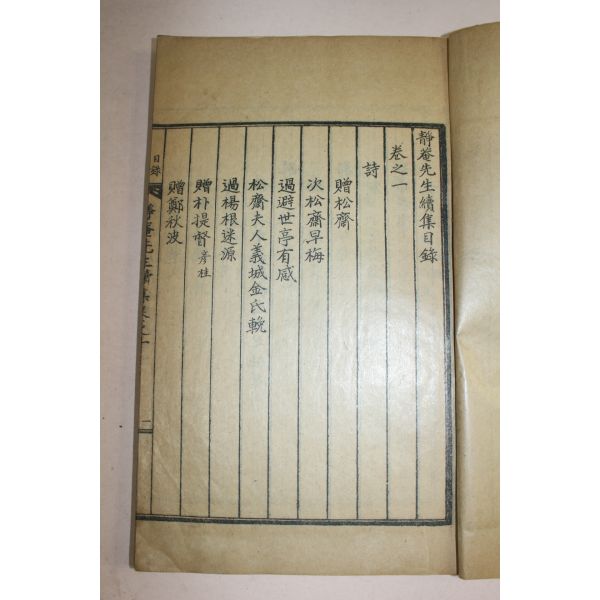 靜菴先生續集目錄
卷之一
詩
贈松齋
次松齋早梅
過避世亭有感
松齋夫人義城金氏輓
過楊根迷源
贈朴提督彦柱
贈鄭秋波
目錄
靜菴先生續集卷之一
一